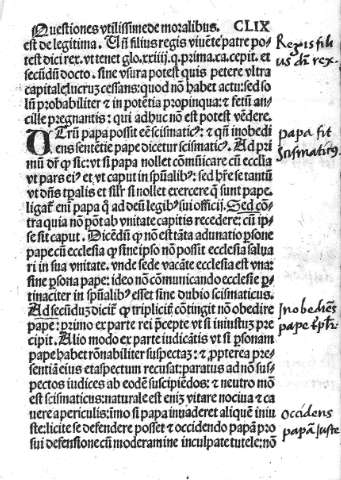 Questiones vtilissime de moralibus. CLIX
est de legitima. Uñ filius regis viuēte patre po-
test dici rex. vt tenet glo. xxiiij. q. prima. ca. cepit. et
secūdū docto. sine vsura potest quis petere vltra
capitale lucruʒ cessans: quod nō habet actu: sed so
lū probabiliter & in potētia propinqua: & fetū an-
cille pregnantis: qui adhuc nō est potest vēdere.
Utrū papa possit eē scismaticꝰ: & qñ inobedi
ens sentētie pape dicetur scismaticꝰ. Ad pri
mū dꝛ ꝙ sic: vt si papa nollet cōmūicare cū ecclīa
vt pars eiꝰ et vt caput in spūalibꝰ: sed hꝛe se tantū
vt dñs tp̄alis et silꝛ si nollet exercere q̄ sunt pape.
ligatꝛ enī papa q̄ ad deū legibꝰ sui officij. Sed cō-
tra quia nō pōt ab vnitate capitis recedere: cū ip-
se sit caput. Dicēdū ꝙ nō est tāta adunatio ꝑsone
pape cū ecclesia ꝙ sine ipso nō possit ecclesia salua
ri in sua vnitate. vnde sede vacāte ecclesia est vna:
sine ꝑsona pape: ideo nō cōmunicando ecclesie ꝑ-
tinaciter in spūalibꝰ esset sine dubio scismaticus.
Ad secūdū dicit̄ ꝙ tripliciꝛ cōtingit nō obedire
pape: primo ex parte rei p̄cepte vt si iniustuʒ pre
cipit. Alio modo ex parte iudicātis vt si ꝑsonam
pape habet rōnabiliter suspectaʒ: & ꝓpterea pre-
sentiā eius et aspectum recusat: paratus ad nō sus-
pectos iudices ab eodē suscipiēdos: & neutro mō
est scismaticus: naturale est eniʒ vitare nociua & ca
uere a periculis: imo si papa inuaderet aliquē iniu
ste: licite se defendere posset & occidendo papā ꝓ
sui defensione cū moderamine inculpate tutele: nō
Regis fili
us dꝛ rex.
papa sit
scismaticus.
Inobediēs
pape
Occidens
papā juste